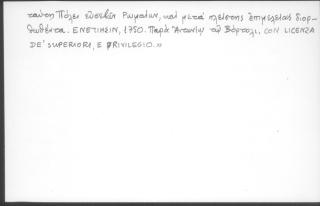 ταύτης Πόλει εὐσεβῶν Ρωμαίων, καὶ μετὰ πλείστης ἐπιμελείας διορ-
θωθέντα. ΕΝΕΤΙΗΣΙΝ, 1750. Παρὰ Ἀντωνίῳ τῷ Βόρτολι. CON LICENZA
DE' SUPERIORI, E PRIVILEGIO.»